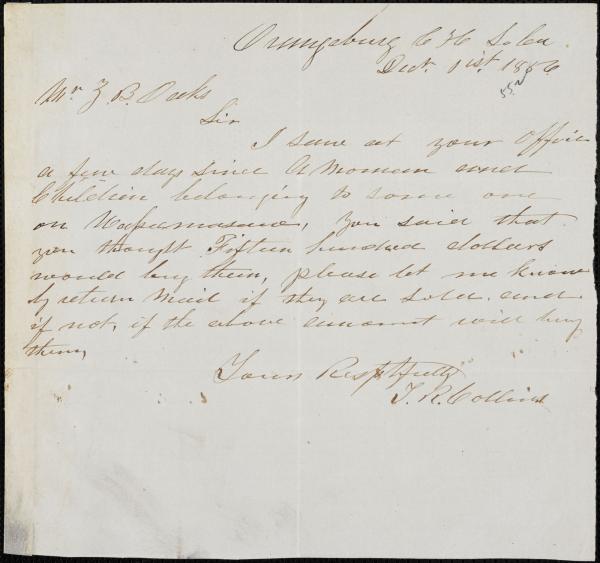 Orangeburg C H So Ca
Dect. 1st. 1856
55
Mr Z. B. Oaks
Sir
I saw at your Office
a few days since a Woman and
Children belonging to some one
on Wassamasaw, you said that
you thought Fifteen hundred dollars
would buy them, please let me know
by return Mail if they are sold and
if not, if the above amount will buy
them
Yours Respctfully
T. R. Collins